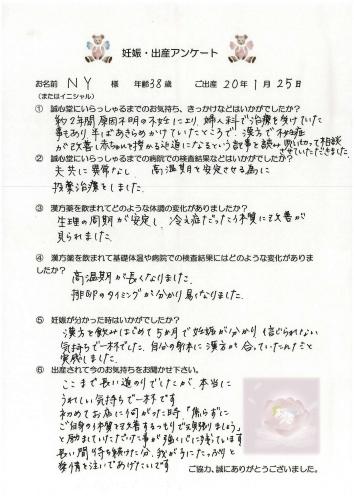 妊娠・出産アンケート
お名前 NY 様 年齢38歳 ご出産 20年1月25日
(またはイニシャル)
① 誠心堂にいらっしゃるまでのお気持ち、きっかけなどはいかがでしたか?
約2年間原因不明の不妊により、婦人科で治療を受けていた
事もあり、半ばあきらめかけていたところで、漢方で不妊症
が改善し赤ちゃんを授かる近道になるという記事を読み思い切って相談
させていただきました。
② 誠心堂にいらっしゃるまでの病院での検査結果などはいかがでしたか?
夫夫に異常なし 高温期を安定させる為に
投薬治療をしました。
③ 漢方薬を飲まれてどのような体調の変化がありましたか?
生理の周期が安定し、冷え症だった体質に改善が
見られました。
④ 漢方薬を飲まれて基礎体温や病院での検査結果にはどのような変化がありま
したか?
高温期が長くなりました。
排卵のタイミングが分かり易くなりました。
⑤ 妊娠が分かった時はいかがでしたか?
漢方を飲みはじめて5か月で妊娠が分かり信じられない
気持ちで一杯でした。自分の身体に漢方が合っていたんだと
実感しました。
⑥ 出産されて今のお気持ちをお聞かせ下さい。
ここまで長い道のりでしたが、本当に
うれしい気持ちで一杯です
初めてお店に伺がった時「焦らずに
ご自身の体質を改善するつもりで頑張りましょう」
と励ましていただいた事が強く心に残っています
長い間待ち続けた分、我が子にたっぷりと
愛情を注いであげたいです
ご協力、誠にありがとうございました。